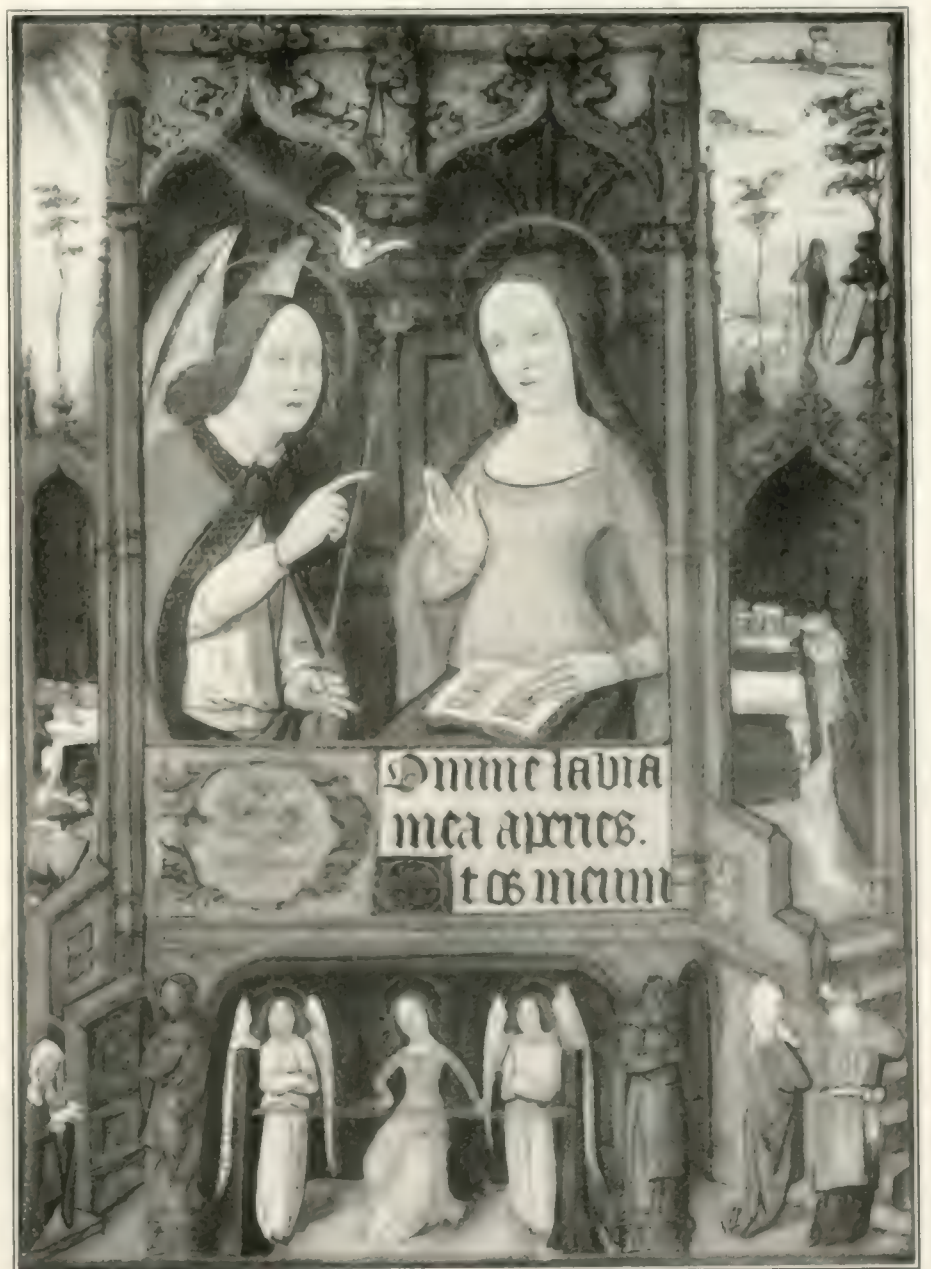 Domine labia
mea aperies.
t os meum